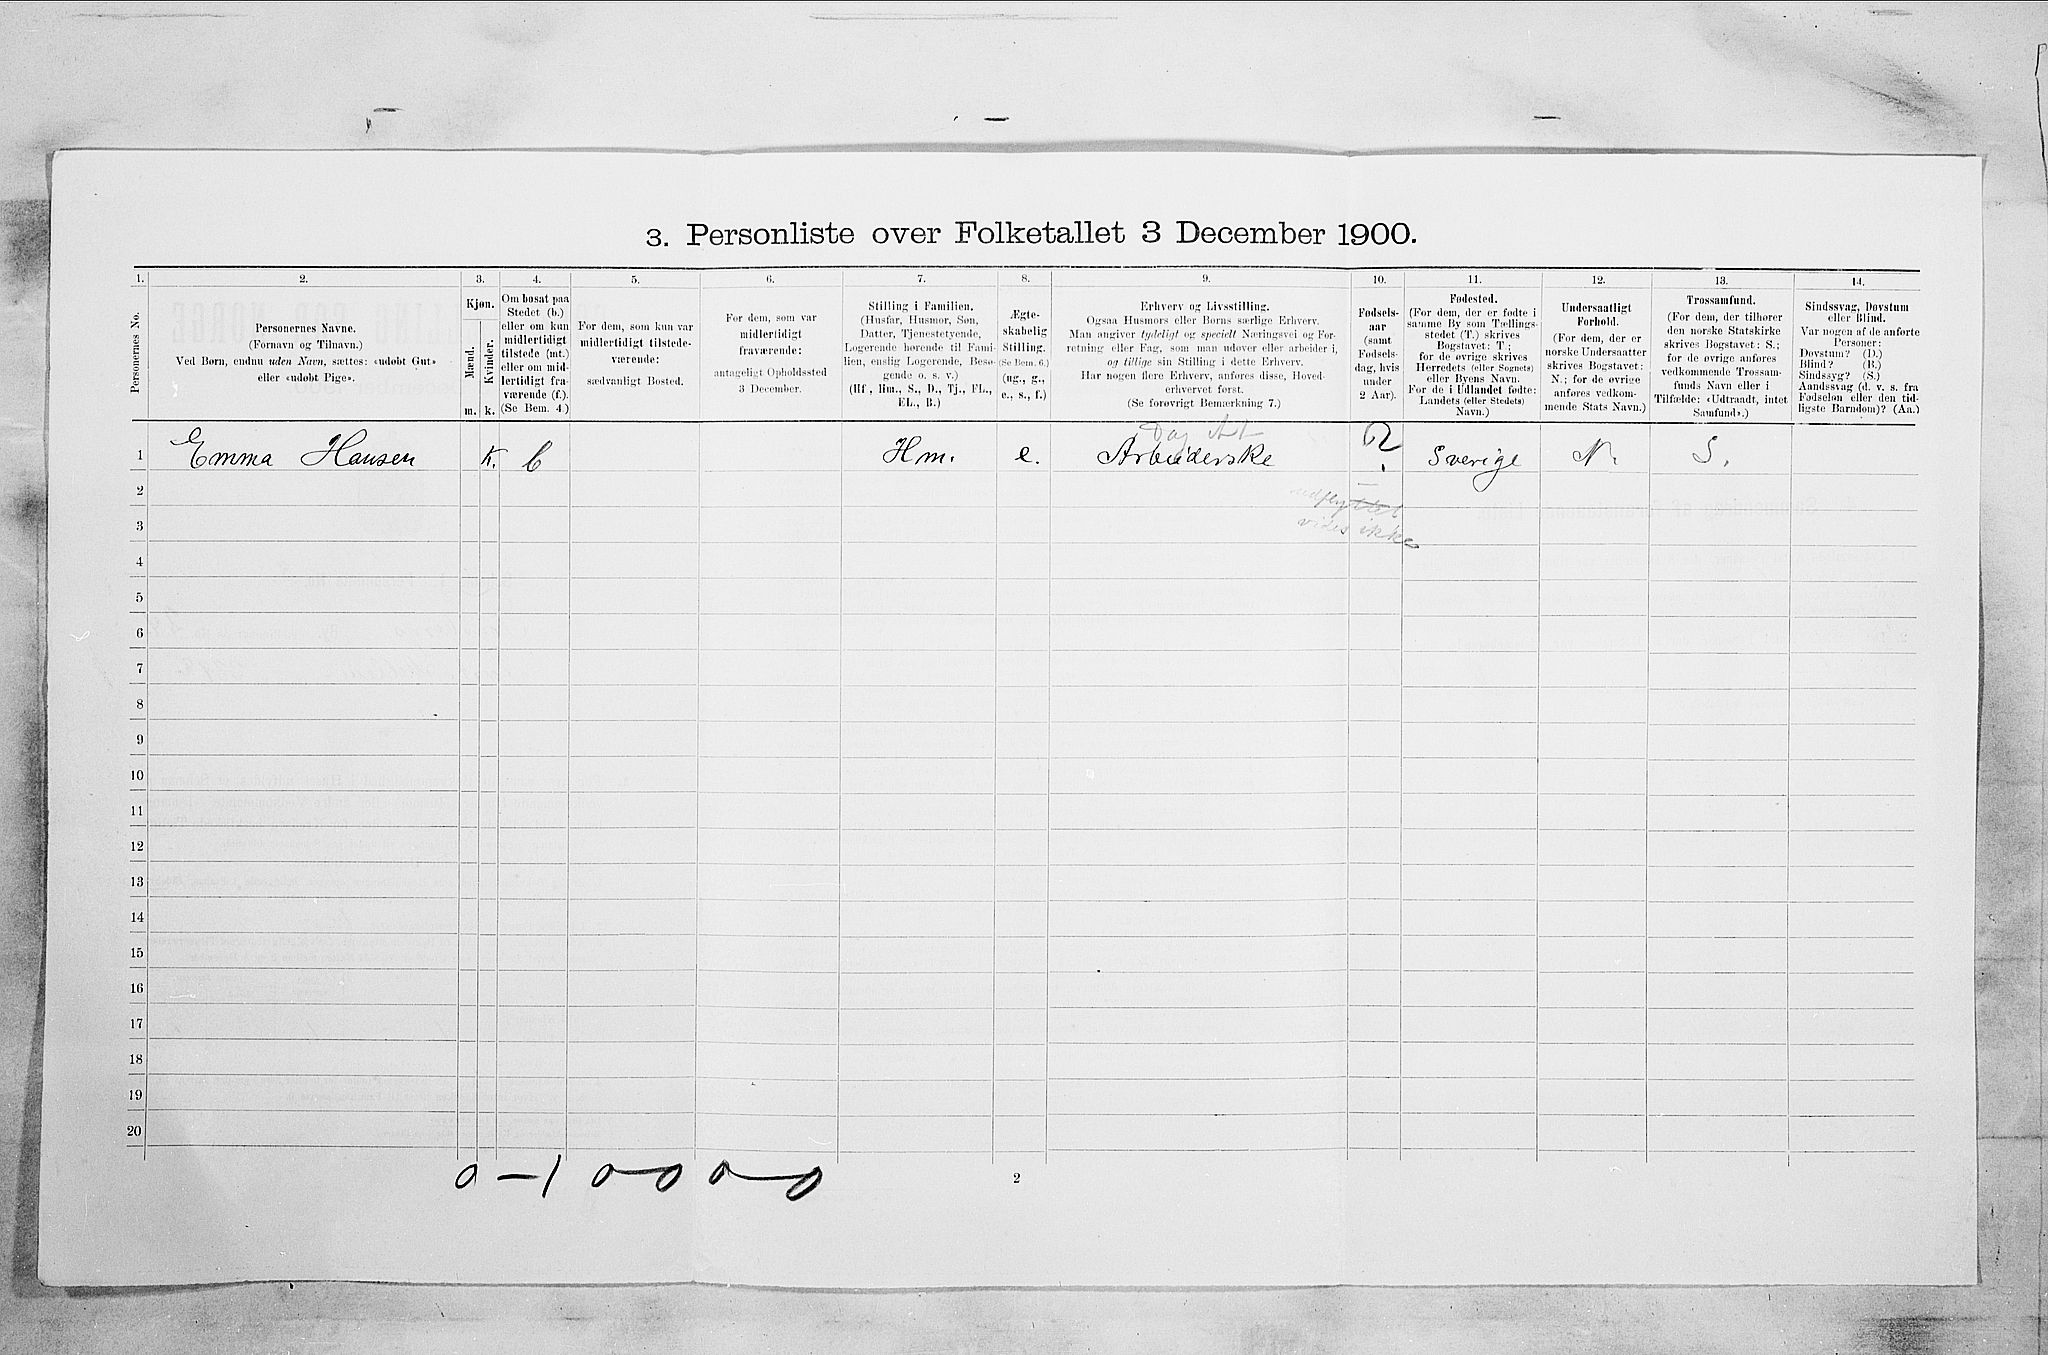 3. Personliste over Folketallet 3 December 1900.
1.
Personernes No.
2.
Personernes Navne.
(Fornavn og Tilnavn.)
Ved Børn, endnu uden Navn, sættes: «udøbt Gut»
eller «udøbt Pige».
3.
Kjøn.
Mænd.
Kvinder.
m.
k.
4.
Om bosat paa
Stedet (b.)
eller om kun
midlertidigt
tilstede (mt.)
eller om mid-
lertidigt fra-
værende (f.).
(Se Bem. 4.)
5.
For dem, som kun var
midlertidigt tilstede-
værende:
sædvanligt Bosted.
6.
For dem, som var
midlertidigt
fraværende:
antageligt Opholdssted
3 December.
7.
Stilling i Familien.
(Husfar, Husmor, Søn,
Datter, Tjenestetyende,
Logerende hørende til Fami-
lien, enslig Logerende, Besø-
gende o. s. v.)
(Hf., Hm., S., D., Tj., FL.,
EL., B.)
8.
Ægte-
skabelig
Stilling.
(Se Bem. 6.)
(ug., g.,
e., s., f.)
9.
Erhverv og Livsstilling.
Ogsaa Husmors eller Børns særlige Erhverv.
Man angiver tydeligt og specielt Næringsvei og For-
retning eller Fag, som man udøver eller arbeider i,
og tillige sin Stilling i dette Erhverv.
Har nogen flere Erhverv, anføres disse, Hoved-
erhvervet først.
(Se forøvrigt Bemærkning 7.)
10.
Fødsels-
aar
(samt
Fødsels-
dag, hvis
under
2 Aar).
11.
Fødested.
(For dem, der er fødte i
samme By som Tællings-
stedet (T.) skrives
Bogstavet: T.;
for de øvrige skrives
Herredets (eller Sognets)
eller Byens Navn.
For de i Udlandet fødte:
Landets (eller Stedets)
Navn.)
12.
Undersaatligt
Forhold.
(For dem, der er
norske Undersaatter
skrives Bogstavet:
N.; for de øvrige
anføres vedkom-
mende Stats Navn.)
13.
Trossamfund.
(For dem, der tilhører
den norske Statskirke
skrives Bogstavet: S.;
for de øvrige anføres
vedkommende Trossam-
funds Navn eller i
Tilfælde: «Udtraadt, intet
Samfund».)
14.
Sindssvag, Døvstum
eller Blind.
Var nogen af de anførte
Personer:
Døvstum? (D.)
Blind? (B.)
Sindssyg? (S.)
Aandssvag (d. v. s. fra
Fødselen eller den tid-
ligste Barndom)? (Aa.)
Dag
1 Emma Hansen K. b Hm. e. Arbeiderske ? Sverige N. S.
2 udflyttet
3 vides ikke
4
5
6
7
8
9
10
11
12
13
14
15
16
17
18
19
20
0 – 1 0 0 0 0
2